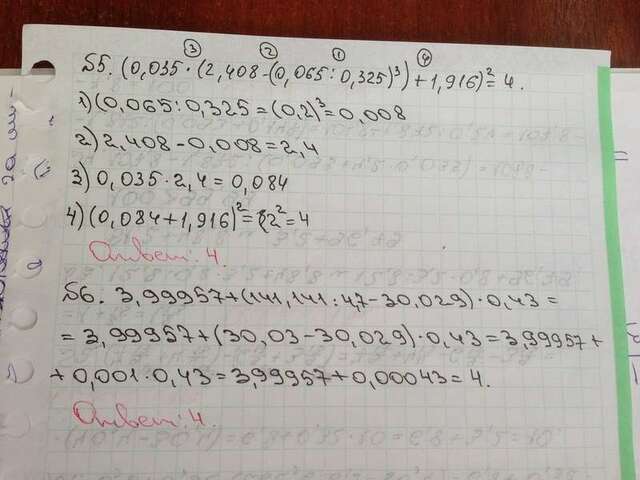 ③ ② ① ④
№5. (0,035·(2,408-(0,065:0,325)³)+1,916)²=4.
1)(0,065:0,325=(0,2)³=0,008
2)2,408-0,008=2,4
3)0,035·2,4=0,084
4)(0,084+1,916)²=2²=4
Ответ: 4.
№6. 3,99957+(141,141:4,7-30,029)·0,43=
=3,99957+(30,03-30,029)·0,43=3,99957+
+0,001·0,43=3,99957+0,00043=4.
Ответ: 4.